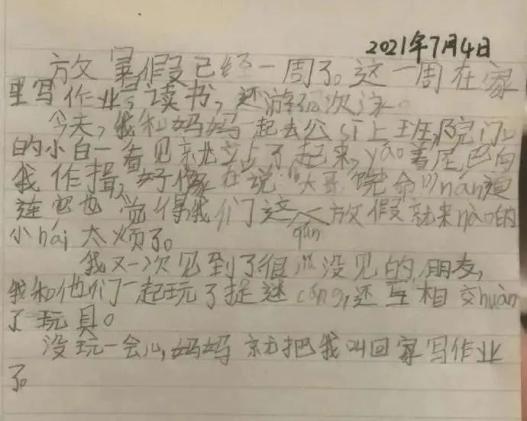 2021年7月4日
放暑假已经一周了。这一周在家
里写作业,读书,还游了次泳。
今天,我和妈妈一起去公sī上班,院门口
的小白一看见我就站了起来,yáo着尾巴向
我作揖,好像在说:"大哥饶命"!nán道
连它也觉得我们这 gāng 放假就来nào的
小hái太烦了。
我又一次见到了很久没见的朋友,
我和他们一起玩了捉迷cáng,还互相交huàn
了玩具。
没玩一会儿,妈妈就把我叫回家写作业
了。